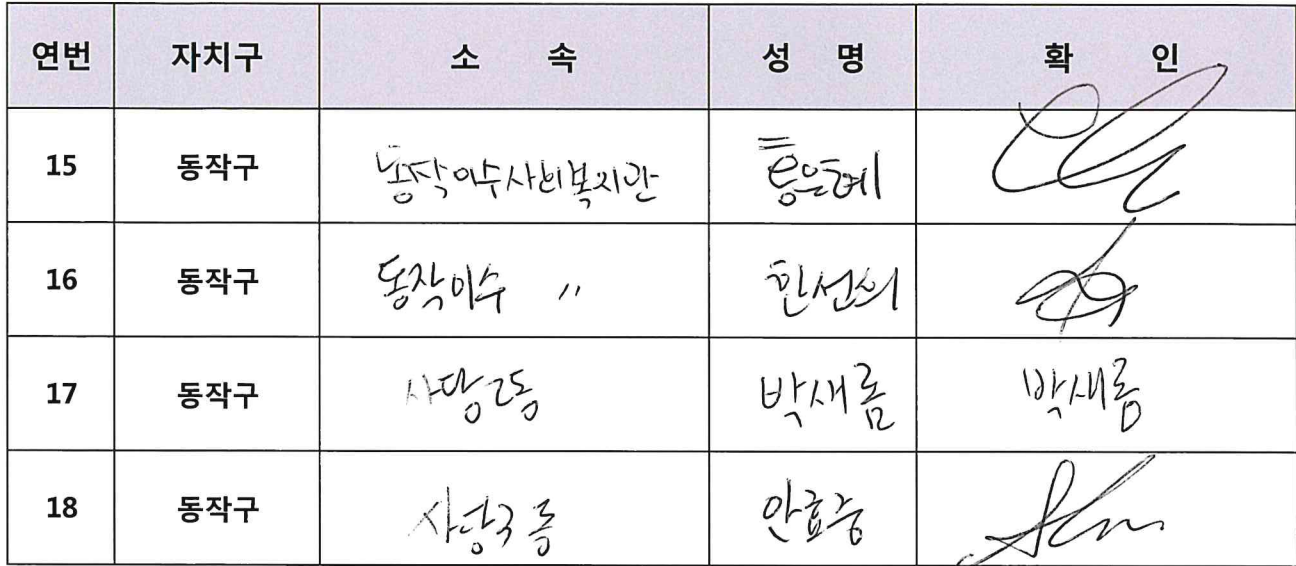 연번 자치구 소 속 성 명 확 인
15 동작구 동작이수사회복지관
16 동작구 동작이수 〃 한선희
17 동작구 사당2동 박새롬 박새롬
18 동작구 사당3동 안효중